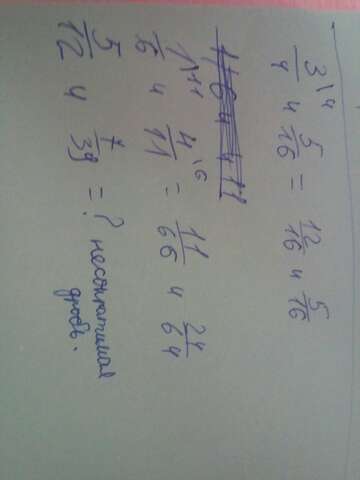 3/4 \4 и 5/16 = 12/16 и 5/16
1/6 \11 и 4/11 \6 = 11/66 и 24/64
5/12 и 7/39 = ? несократимая
дробь.